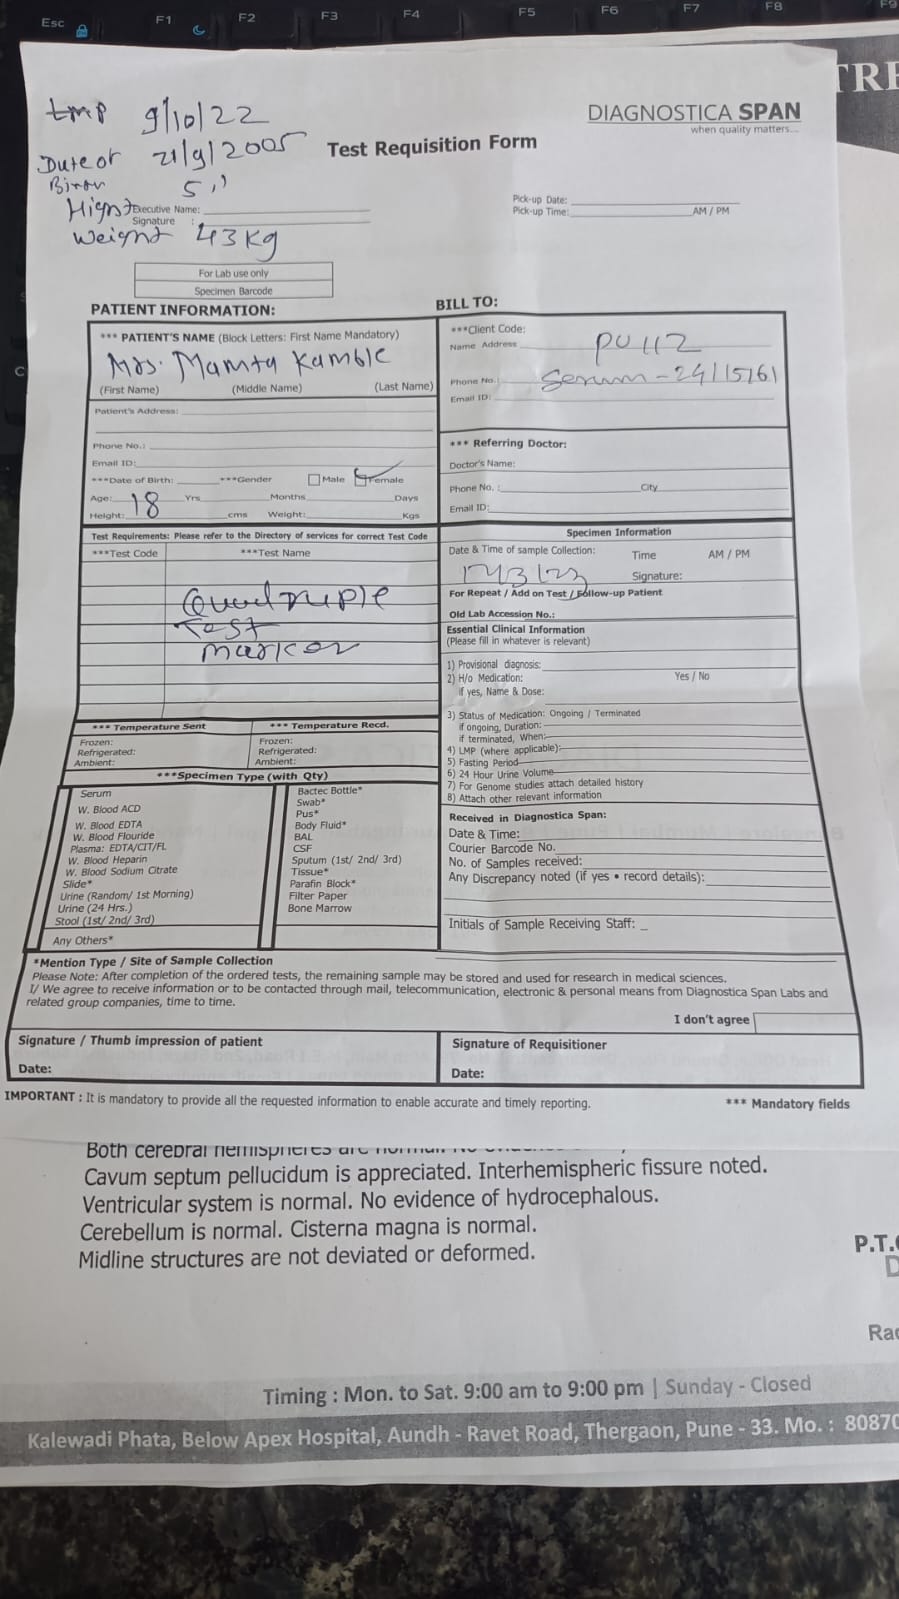 Esc F1 F2 F3 F4 F5 F6 F7 F8 F9
TRE
LMP 9/10/22
DIAGNOSTICA SPAN
when quality matters...
Date of 21/9/2005
Birth
Test Requisition Form
Hight 5,"
Executive Name:
Signature :
Weight 43 Kg
Pick-up Date:
Pick-up Time: AM / PM
For Lab use only
Specimen Barcode
PATIENT INFORMATION:
*** PATIENT'S NAME (Block Letters: First Name Mandatory)
Mrs. Mamta Kamble
(First Name) (Middle Name) (Last Name)
Patient's Address:
Phone No.:
Email ID:
***Date of Birth: ***Gender Male Female
Age: 18 Yrs Months Days
Height: cms Weight: Kgs
BILL TO:
***Client Code:
Name Address PU112
Phone No.: Serum - 24115761
Email ID:
*** Referring Doctor:
Doctor's Name:
Phone No. : City
Email ID:
Test Requirements: Please refer to the Directory of services for correct Test Code
***Test Code ***Test Name
Quadruple
Test
marker
*** Temperature Sent *** Temperature Recd.
Frozen: Frozen:
Refrigerated: Refrigerated:
Ambient: Ambient:
***Specimen Type (with Qty)
Serum
W. Blood ACD
W. Blood EDTA
W. Blood Flouride
Plasma: EDTA/CIT/FL
W. Blood Heparin
W. Blood Sodium Citrate
Slide*
Urine (Random/ 1st Morning)
Urine (24 Hrs.)
Stool (1st/ 2nd/ 3rd)
Any Others*
Bactec Bottle*
Swab*
Pus*
Body Fluid*
BAL
CSF
Sputum (1st/ 2nd/ 3rd)
Tissue*
Parafin Block*
Filter Paper
Bone Marrow
Specimen Information
Date & Time of sample Collection: Time AM / PM
Signature:
For Repeat / Add on Test / Follow-up Patient
Old Lab Accession No.:
Essential Clinical Information
(Please fill in whatever is relevant)
1) Provisional diagnosis:
2) H/o Medication: Yes / No
if yes, Name & Dose:
3) Status of Medication: Ongoing / Terminated
if ongoing, Duration:
if terminated, When:
4) LMP (where applicable):
5) Fasting Period
6) 24 Hour Urine Volume
7) For Genome studies attach detailed history
8) Attach other relevant information
Received in Diagnostica Span:
Date & Time:
Courier Barcode No.
No. of Samples received:
Any Discrepancy noted (if yes • record details):
Initials of Sample Receiving Staff:
*Mention Type / Site of Sample Collection
Please Note: After completion of the ordered tests, the remaining sample may be stored and used for research in medical sciences.
I/ We agree to receive information or to be contacted through mail, telecommunication, electronic & personal means from Diagnostica Span Labs and
related group companies, time to time.
I don't agree
Signature / Thumb impression of patient
Date:
Signature of Requisitioner
Date:
IMPORTANT : It is mandatory to provide all the requested information to enable accurate and timely reporting. *** Mandatory fields
Both cerebral hemispheres are normal.
Cavum septum pellucidum is appreciated. Interhemispheric fissure noted.
Ventricular system is normal. No evidence of hydrocephalous.
Cerebellum is normal. Cisterna magna is normal.
Midline structures are not deviated or deformed.
P.T.
D
Rad
Timing : Mon. to Sat. 9:00 am to 9:00 pm | Sunday - Closed
Kalewadi Phata, Below Apex Hospital, Aundh - Ravet Road, Thergaon, Pune - 33. Mo. : 80870